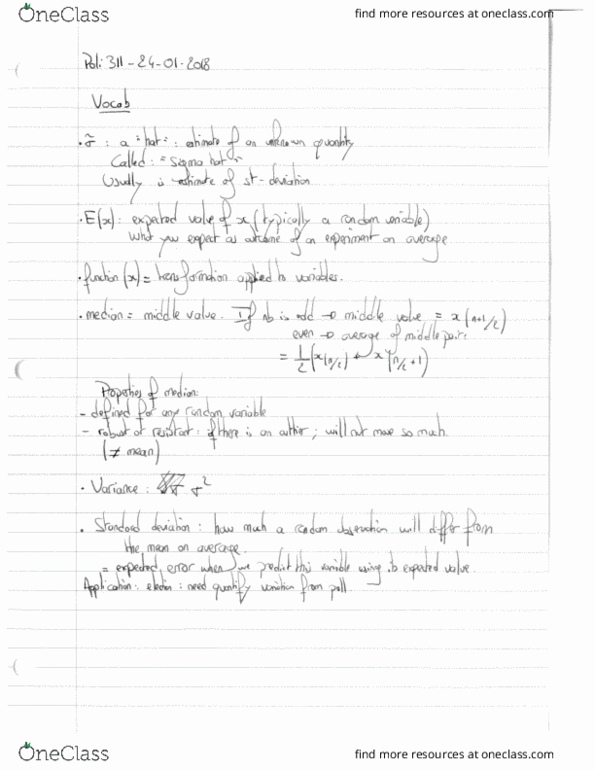 OneClass
find more resources at oneclass.com
Poli 311 - 24-01-2018
Vocab
• σ̂ : a "hat" : estimate of an unknown quantity
Called : "Sigma hat"
Usually is estimate of st-deviation
• E(x) : expected value of x (typically a random variable)
What you expect as outcome of an experiment on average
• function (x) = transformation applied to variables.
• median = middle value. If nb is odd → middle value = x(n+1/2)
even → average of middle pair:
= 1/2 (x(n/2) + x(n/2 + 1))
Properties of median:
- defined for any random variable
- robust or resistant : if there is an outlier ; will not move so much
(≠ mean)
• Variance : σ²
• Standard deviation : how much a random observation will differ from
the mean on average.
= expected error when we predict this variable using its expected value.
Application : election : need quantify variation from poll.
OneClass
find more resources at oneclass.com